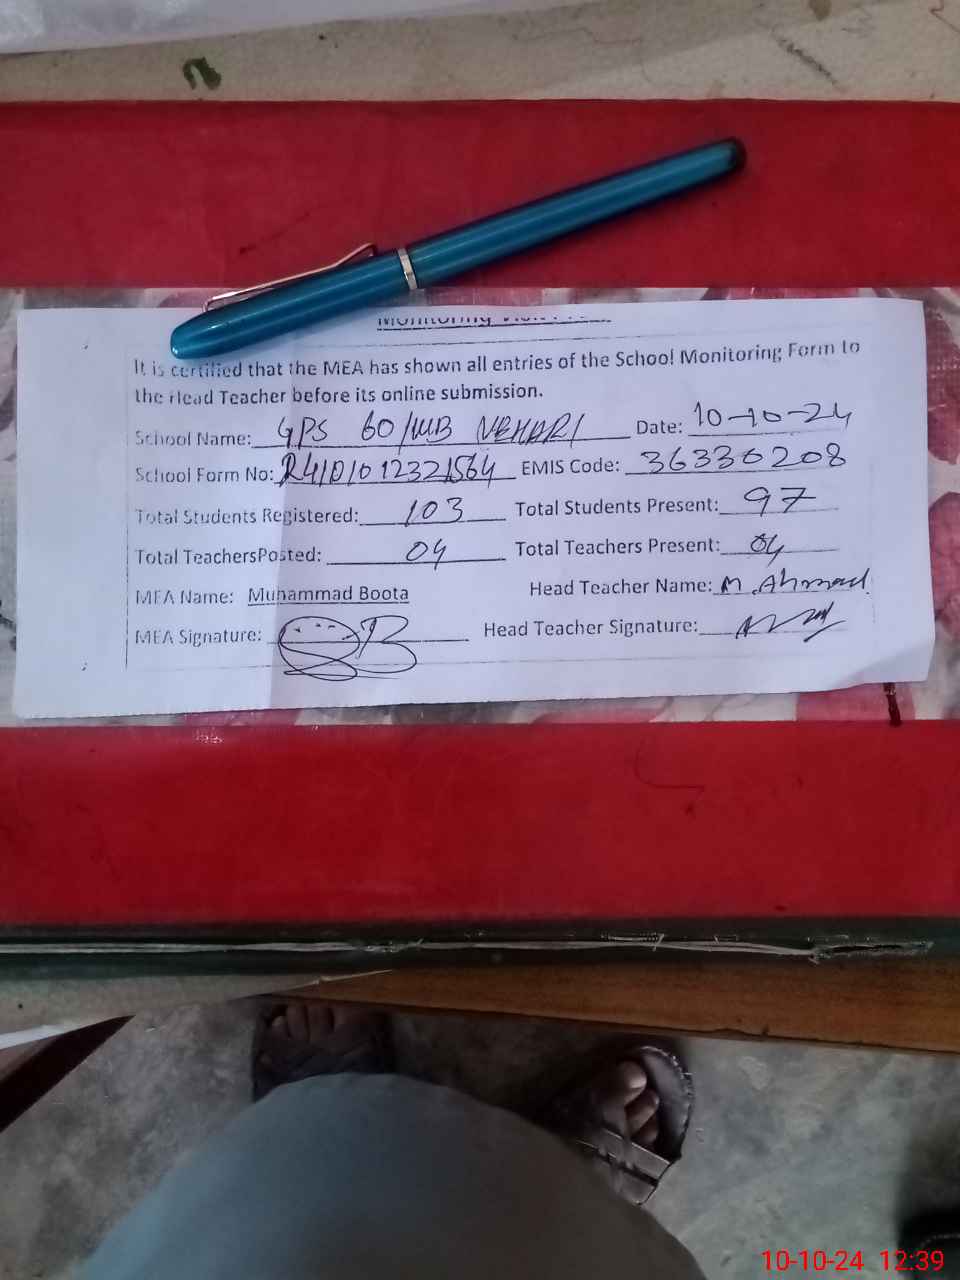 It is certified that the MEA has shown all entries of the School Monitoring Form to
the Head Teacher before its online submission.
School Name: GPS 60/WB VEHARI Date: 10-10-24
School Form No: EMIS Code: 36330208
Total Students Registered: 103 Total Students Present: 97
Total TeachersPosted: 04 Total Teachers Present: 04
MEA Name: Muhammad Boota Head Teacher Name: M. Ahmad
MEA Signature: Head Teacher Signature:
10-10-24 12:39